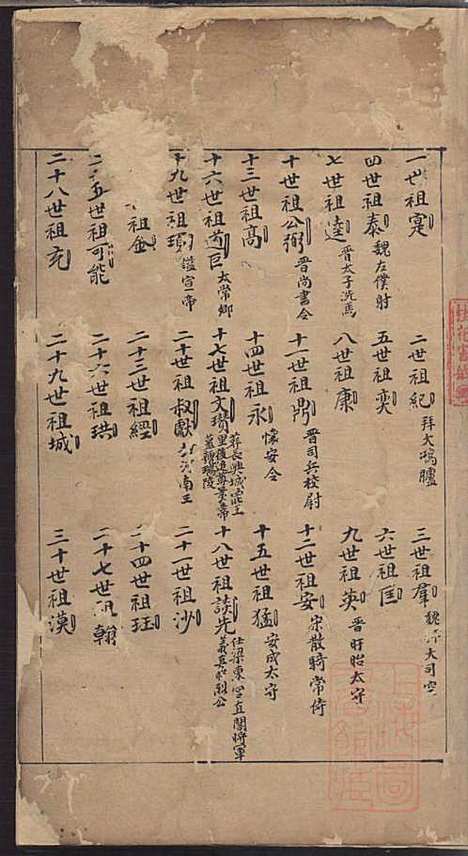 一世祖寔 二世祖紀 拜大鴻臚 三世祖羣 魏 大司空
四世祖泰 魏左僕射 五世祖奕 六世祖匡
七世祖逵 晋太子洗馬 八世祖康 九世祖英 晋盱眙太守
十世祖公弼 晋尚書令 十一世祖鼎 晋司兵校尉 十二世祖安 宋散騎常侍
十三世祖高 十四世祖永 懷安令 十五世祖猛 安成太守
十六世祖道巨 太常卿 十七世祖文瓚 十八世祖談先 仕梁東宫直閣將軍 義興昭烈公
十九世祖 二十世祖叔獻 河南王 二十一世祖沙
祖金 二十三世祖經 二十四世祖珏
二十五世祖可能 二十六世祖珙 二十七世祖翰
二十八世祖充 二十九世祖城 三十世祖漠